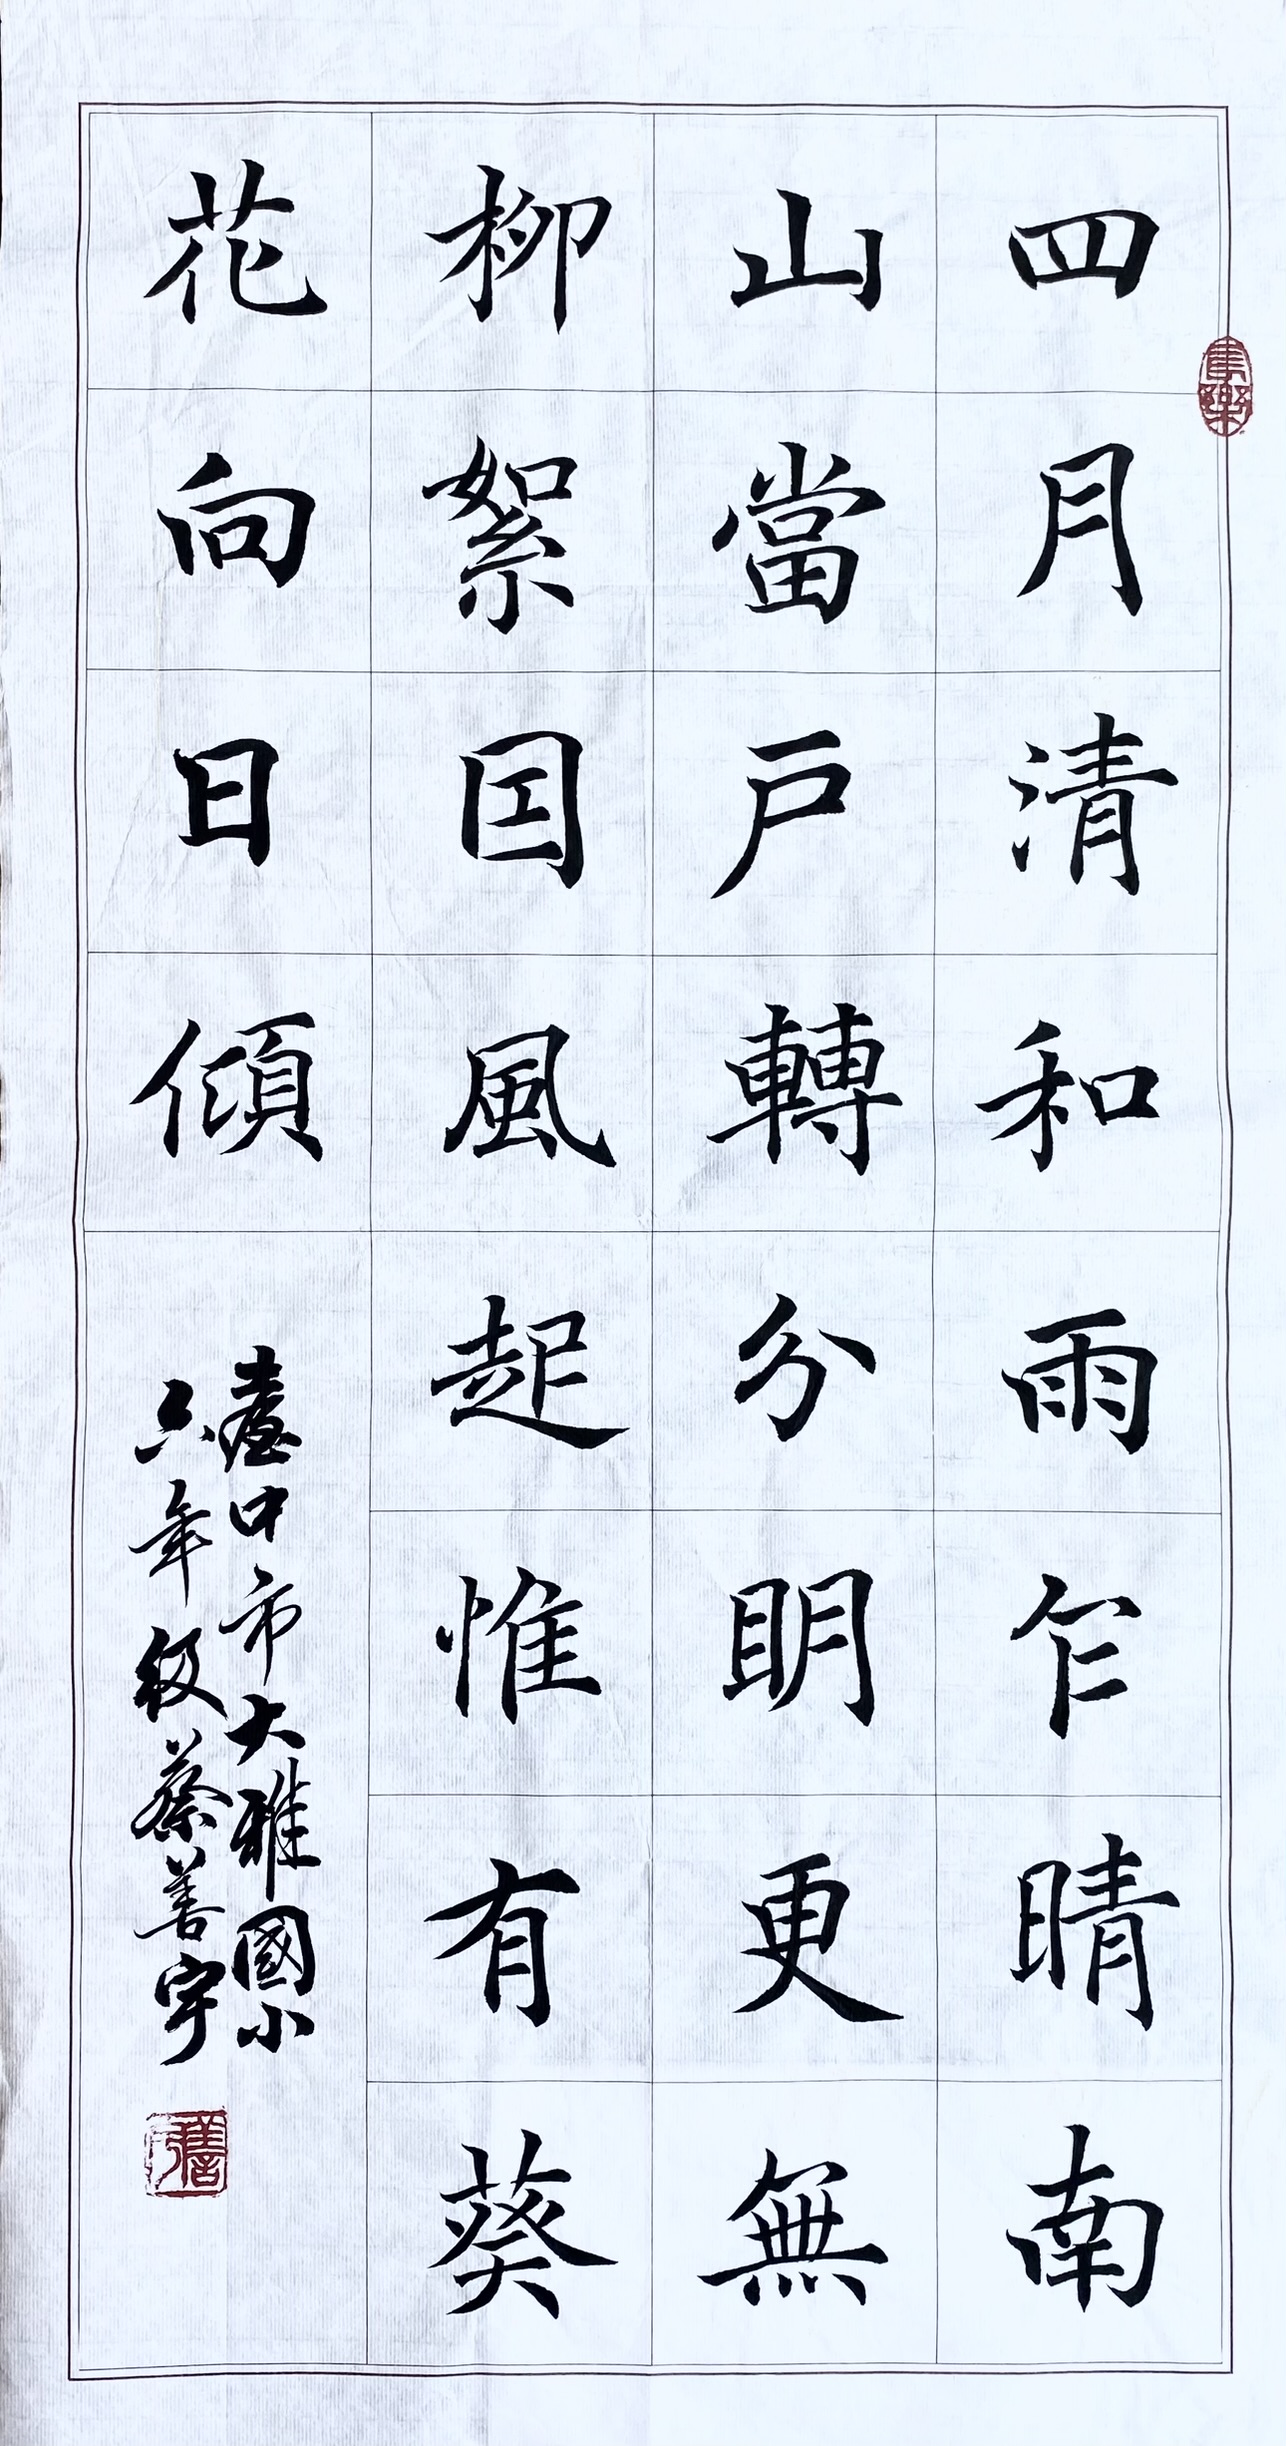 四月清和雨乍晴南
山當戶轉分明更無
柳絮因風起惟有葵
花向日傾
臺中市大雅國小
六年級蔡善宇